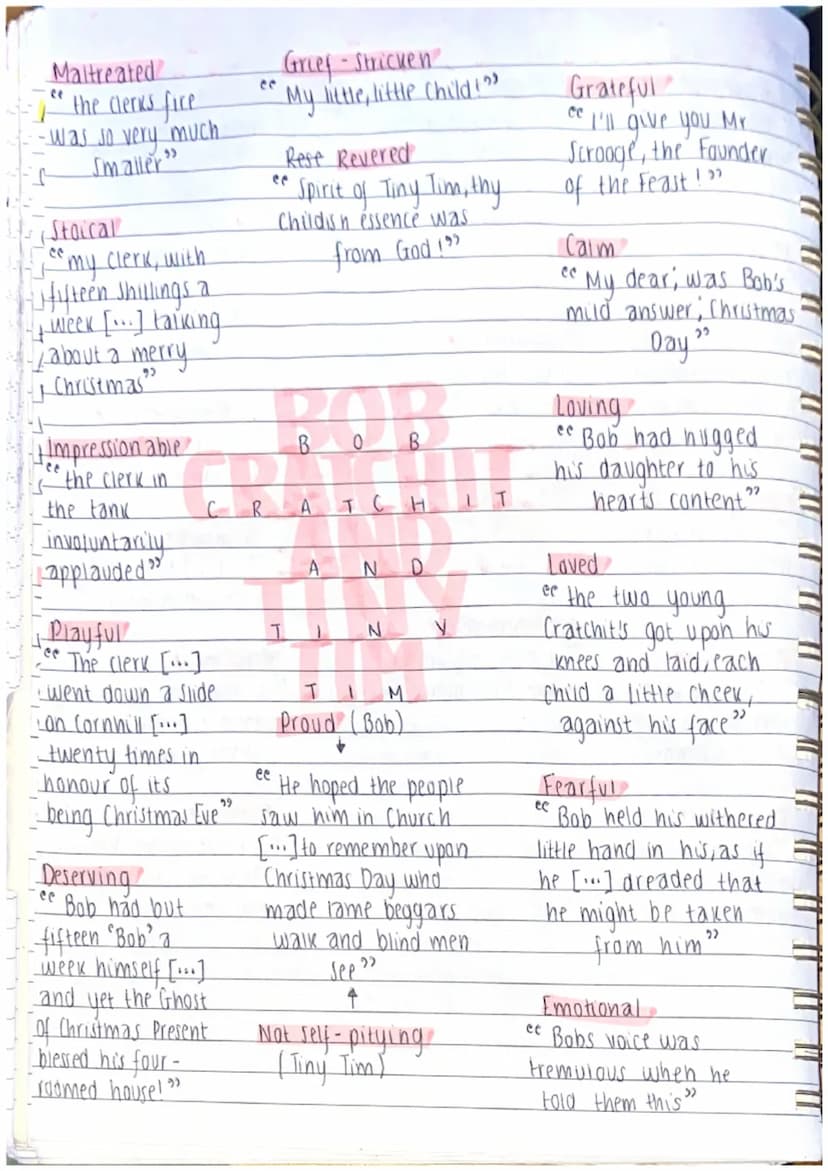 Maltreated
“ the clerks fire
was so very much
smaller”
Stoical
“my clerk, with
fifteen shillings a
week [...] talking
about a merry
Christmas”
Impressionable
“the clerk in
the tank
involuntarily
applauded”
Playful
“ The clerk [...]
went down a slide
on Cornhill [...]
twenty times in
honour of its
being Christmas Eve”
Deserving
“ Bob had but
fifteen ‘Bob’ a
week himself [...]
and yet the Ghost
of Christmas Present
blessed his four-
roomed house!”
Grief - Stricken
“ My little, little child!”
Rese Revered
“ Spirit of Tiny Tim, thy
childish essence was
from God!”
BOB
CRATCHIT
AND
TINY
TIM
B O B
C R A T C H I T
A N D
T I N Y
T I M
Proud (Bob)
↓
“ He hoped the people
saw him in Church
[...] to remember upon
Christmas Day who
made lame beggars
walk and blind men
see”
↑
Not self-pitying
(Tiny Tim)
Grateful
“ I'll give you Mr
Scrooge, the Founder
of the Feast!”
Calm
“ My dear; was Bob's
mild answer; Christmas
Day”
Loving
“ Bob had hugged
his daughter to his
hearts content”
Loved
“ the two young
Cratchit's got upon his
knees and laid, each
child a little cheek,
against his face”
Fearful
“ Bob held his withered
little hand in his, as if
he [...] dreaded that
he might be taken
from him”
Emotional
“ Bobs voice was
tremulous when he
told them this”